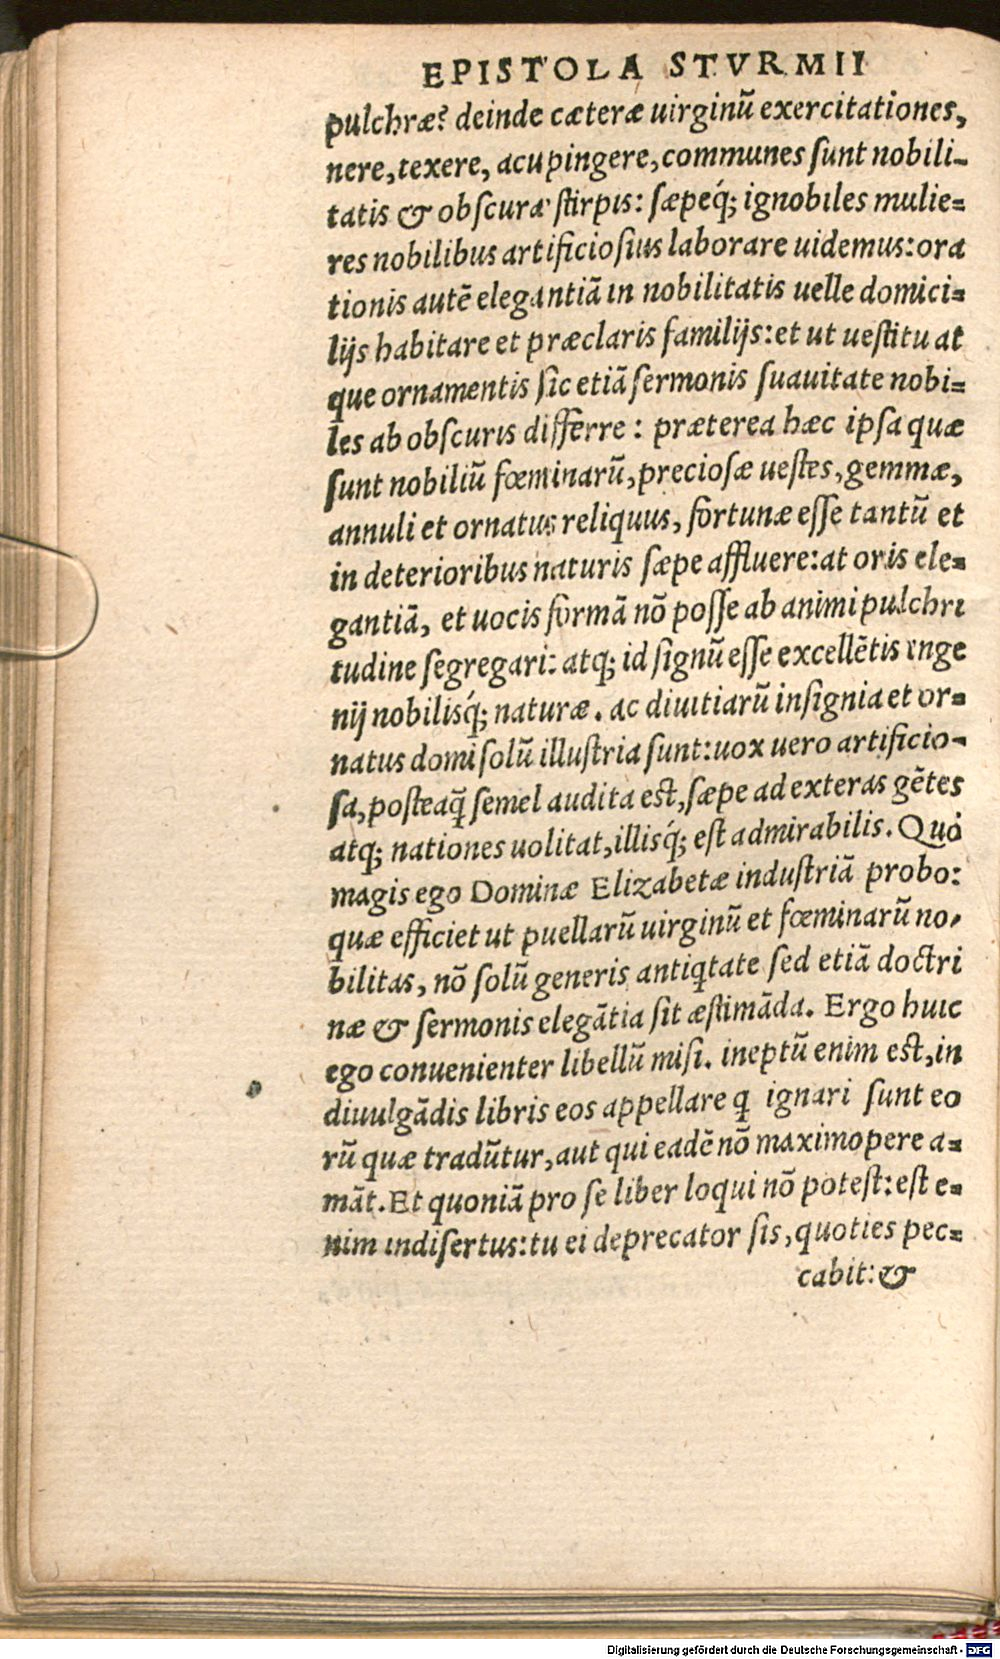 EPISTOLA STVRMII
pulchræ? deinde cæteræ uirginũ exercitationes,
nere, texere, acu pingere, communes ſunt nobili-
tatis & obſcuræ ſtirpis: ſæpeq́; ignobiles mulie=
res nobilibus artificioſius laborare uidemus: ora
tionis autẽ elegantiã in nobilitatis uelle domici=
lijs habitare et præclaris familijs: et ut ueſtitu at
que ornamentis ſic etiã ſermonis ſuauitate nobi=
les ab obſcuris differre: præterea hæc ipſa quæ
ſunt nobiliũ fœminarũ, precioſæ ueſtes, gemmæ,
annuli et ornatus reliquus, fortunæ eſſe tantũ et
in deterioribus naturis ſæpe affluere: at oris ele=
gantiã, et uocis formã nõ poſſe ab animi pulchri
tudine ſegregari: atq; id ſignũ eſſe excellẽtis inge
nij nobilisq́; naturæ. ac diuitiarũ inſignia et or=
natus domi ſolũ illuſtria ſunt: uox uero artificio-
ſa, poſteaq̃ ſemel audita eſt, ſæpe ad exteras gẽtes
atq; nationes uolitat, illisq́; eſt admirabilis. Quò
magis ego Dominæ Elizabetæ induſtriã probo:
quæ efficiet ut puellarũ uirginũ et fœminarũ no-
bilitas, nõ ſolũ generis antiq̃tate ſed etiã doctri
næ & ſermonis elegãtia ſit æſtimãda. Ergo huic
ego conuenienter libellũ miſi. ineptũ enim eſt, in
diuulgãdis libris eos appellare q̃ ignari ſunt eo
rũ quæ tradũtur, aut qui eadẽ nõ maximopere a=
mãt. Et quoniã pro ſe liber loqui nõ poteſt: eſt e=
nim indiſertus: tu ei deprecator ſis, quoties pec=
cabit: &
Digitalisierung gefördert durch die Deutsche Forschungsgemeinschaft - DFG